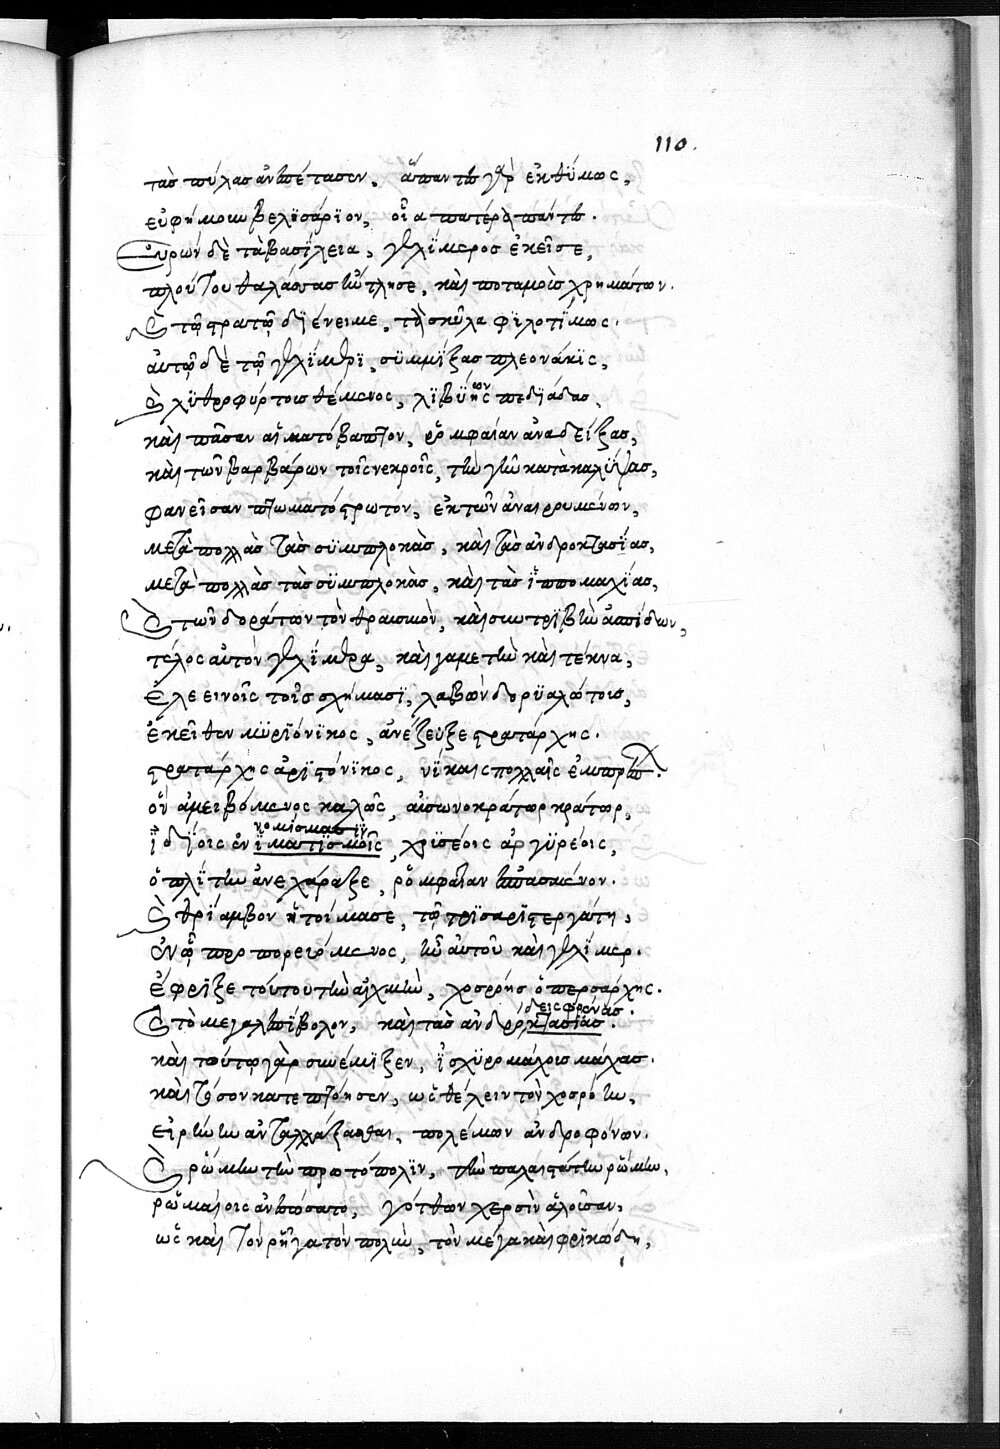 110.
τὰς πύλας ἀνεπέτασεν. ἅπαντες γὰρ ἐκθύμως,
εὐφήμουν βελϊσάρϊον, οἷα πατέρα πάντες.
Εὑρὼν δὲ τὰ βασίλεια, γελίμερος ἐκεῖσε,
πλούτου θαλάσσας ἤντλησε, καὶ ποταμοὺς χρημάτων.
καὶ τῷ στρατῷ δϊένειμε, τὰ σκῦλα φϊλοτίμως.
αὐτῷ δὲ τῷ γελΐμερϊ, συμμίξας πλεονάκις,
καὶ λυθροφύρτους θέμενος, λϊβύης ων πεδϊάδας,
καὶ πᾶσαν αἱματόβαπτον, ῥομφαίαν ἀναδείξας,
καὶ τῶν βαρβάρων τοῖς νεκροῖς, τὴν γῆν κατακαλύψας,
φανεῖσαν πτωματόστρωτον, ἐκ τῶν ἀναιρουμένων,
μετὰ πολλὰς τὰς συμπλοκὰς, καὶ τὰς ἀνδροκτασίας,
μετὰ πολλὰς τὰς συμπλοκὰς, καὶ τὰς ἱππομαχίας,
καὶ τῶν δοράτων τὸν θραυσμὸν, καὶ συντριβὴν ἀσπίδων,
τέλος αὐτὸν γελΐμερα, καὶ γαμετὴν καὶ τέκνα,
ἐλεεινοῖς τοῖς σχήμασϊ, λαβὼν δορυαλώτους,
ἐκεῖθεν μυριόνϊκος, ἀνέζευξε στρατάρχης.
στρατάρχης ἀρϊστόνϊκος, νίκαις πολλαῖς ἐμπρέπων.
ὃν ἀμειβόμενος καλῶς, αὐσωνοκράτωρ κράτωρ,
νομίσμασϊν
ϊδίοις ἐν ἱματϊσμοῖς, χρυσέοις ἀργυρέοις,
ὁπλίτην ἀνεχάραξε, ῥομφαίαν ἐσπασμένον.
καὶ θρίαμβον ἡτοίμασε, τῷ τρϊσαρϊστεργάτῃ,
ἐν ᾧπερ πορευόμενος, ἦν αὐτοῦ καὶ γελίμερ.
ἔφριξε τούτου τὴν αἰχμὴν, χοσρόης ὁ περσάρχης.
δεις φρένας.
καὶ τὸ μεγαλεπίβολον, καὶ τὰς ἀνδροκτασίας.
καὶ τούτῳ γὰρ συνέμϊξεν, ἰσχυρομάχοις μάχαις.
καὶ τόσον κατεπτόησεν, ὡς θέλειν τὸν χοσρόην,
εἰρήνην ἀνταλλάξασθαι, πολέμων ἀνδροφόνων.
καὶ ῥώμην τὴν πρωτόπολϊν, τὴν παλαιστάτην ῥώμην,
ῥωμαίοις ἀνεσώσατο, γότθων χερσὶν ἁλοῦσαν,
ὡς καὶ τὸν ῥῆγα τὸν πολὺν, τὸν μέγα καὶ φρικώδη,